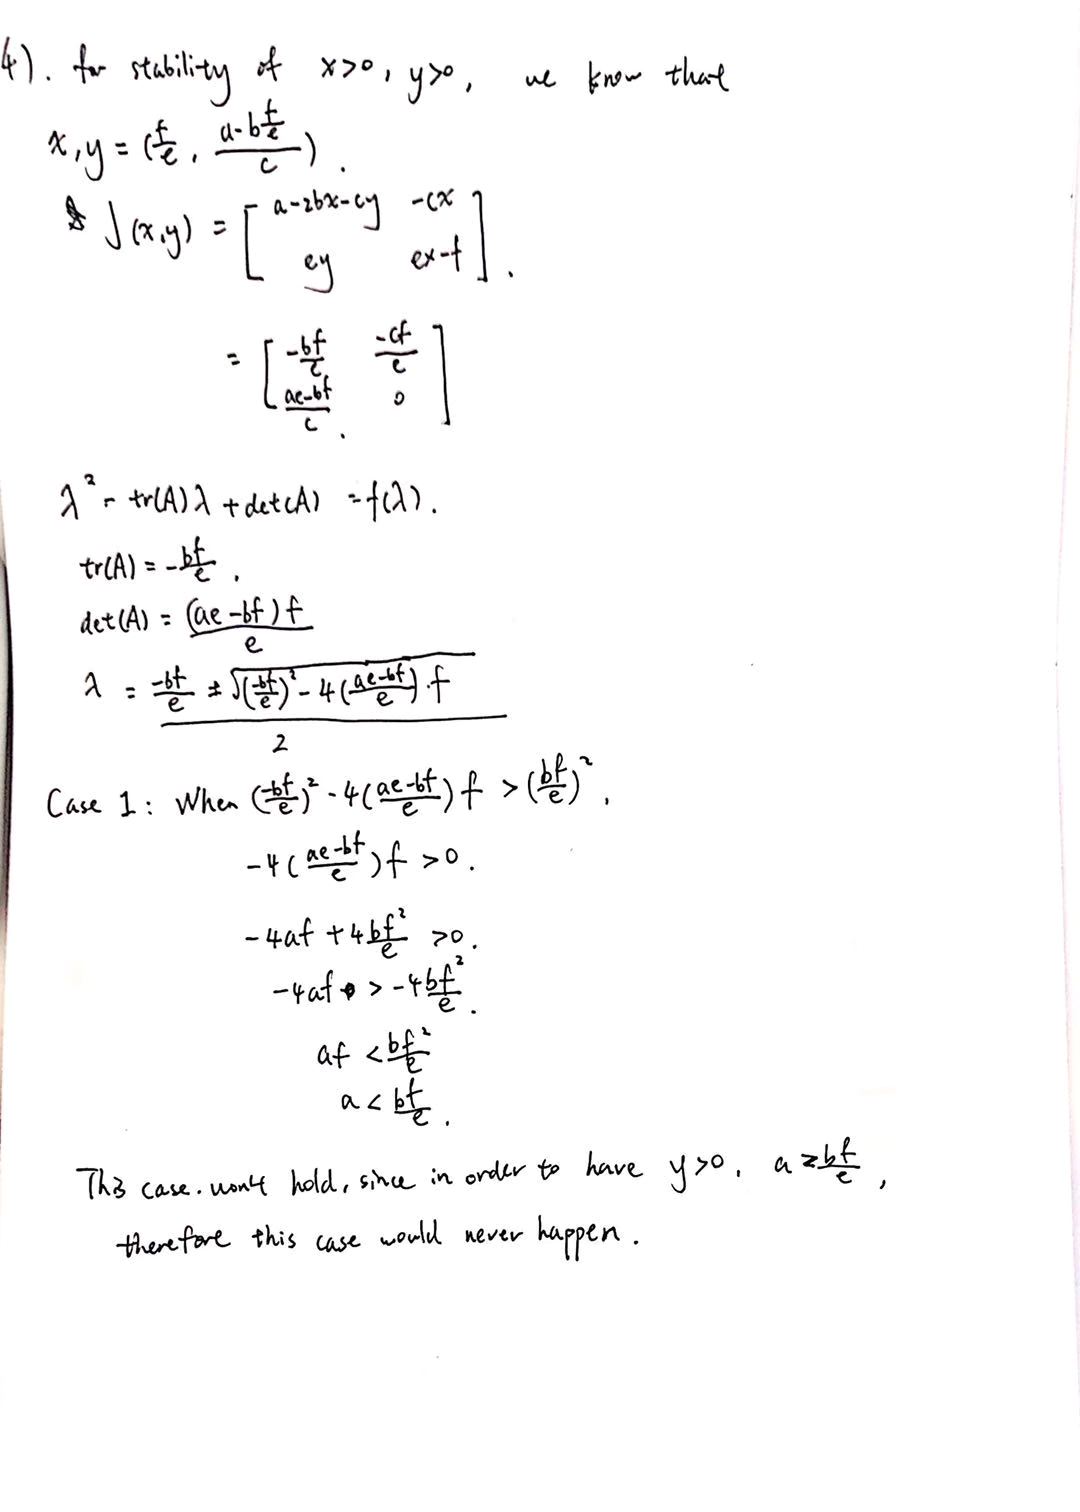 4). for stability of x>0, y>0, we know that
x,y = (f/e, (a-b f/e)/c).
J(x,y) = [ a-2bx-cy -cx
ey ex-f ].
= [ -bf/e -cf/e
(ae-bf)/c 0 ].
λ² - tr(A)λ + det(A) = f(λ).
tr(A) = -bf/e.
det(A) = (ae-bf)f/e
λ = (-bf/e ± √((-bf/e)² - 4((ae-bf)/e)·f))/2
Case 1: When (-bf/e)² - 4((ae-bf)/e)f > (bf/e)²,
-4((ae-bf)/e)f > 0.
-4af + 4bf²/e > 0.
-4af > -4bf²/e.
af < bf²/e
a < bf/e.
This case. won't hold, since in order to have y>0, a ≥ bf/e,
therefore this case would never happen.